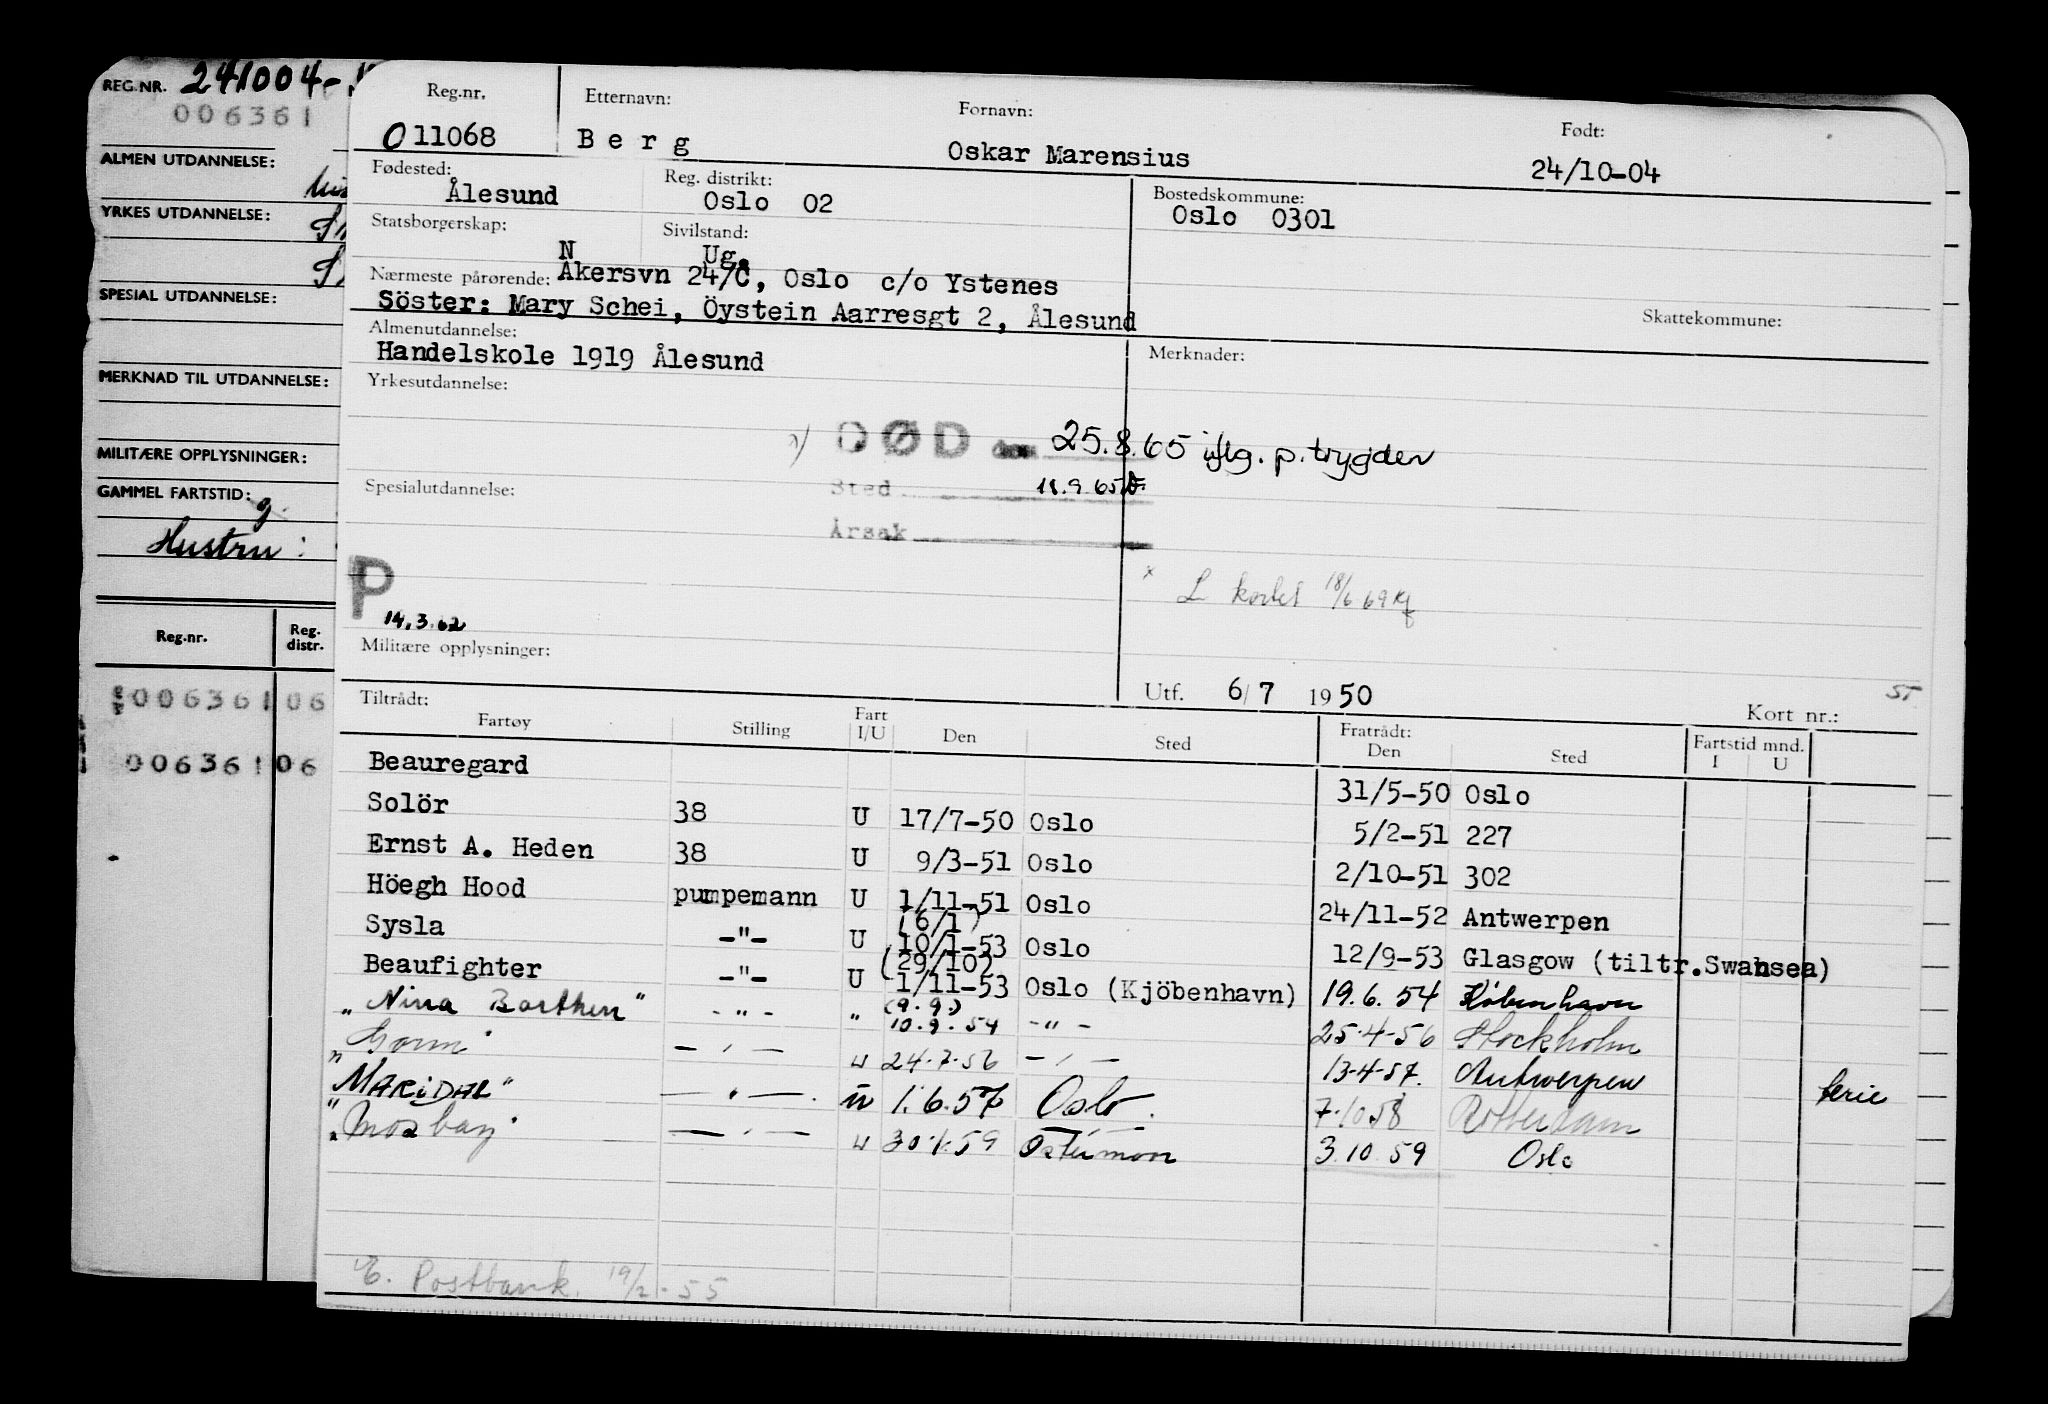 REG.NR. 241004-
006361
ALMEN UTDANNELSE:
YRKES UTDANNELSE:
SPESIAL UTDANNELSE:
MERKNAD TIL UTDANNELSE:
MILITÆRE OPPLYSNINGER:
GAMMEL FARTSTID:
g.
Hustru:
Reg.nr. Reg. distr.
006361 06
006361 06
Reg.nr. Etternavn: Fornavn: Født:
011068 Berg Oskar Marensius 24/10-04
Fødested: Reg. distrikt: Bostedskommune:
Ålesund Oslo 02 Oslo 0301
Statsborgerskap: Sivilstand:
N Ug.
Nærmeste pårørende: Akersvn 24/C, Oslo c/o Ystenes
Söster: Mary Schei, Öystein Aarresgt 2, Ålesund Skattekommune:
Almenutdannelse: Merknader:
Handelskole 1919 Ålesund
Yrkesutdannelse:
DØD den 25.8.65 iflg. p.trygden
Spesialutdannelse: Sted 18.9.65
Årsak
P x L kortet 18/6 69
14.3.62
Militære opplysninger:
Utf. 6/7 1950 ST
Kort nr.:
Tiltrådt: Fratrådt:
Fartøy Stilling Fart I/U Den Sted Den Sted Fartstid mnd. I U
Beauregard 31/5-50 Oslo
Solör 38 U 17/7-50 Oslo 5/2-51 227
Ernst A. Heden 38 U 9/3-51 Oslo 2/10-51 302
Höegh Hood pumpemann U 1/11-51 Oslo 24/11-52 Antwerpen
(6/1)
Sysla -"- U 10/1-53 Oslo 12/9-53 Glasgow (tiltr.Swansea)
(29/10)
Beaufighter -"- U 1/11-53 Oslo (Kjöbenhavn) 19.6.54 København
(9.9.)
"Nina Borthen" -"- " 10.9.54 -"- 25-4-56 Stockholm
"Gorm" -"- u 24.7.56 -"- 13-4-57. Antwerpen
"MARIDAL" -"-. u 1.6.57 Oslo. 7.10.58 Rotterdam ferie
"Mosbay" -"- u 30.1.59 3.10.59 Oslo
E. Postbank. 19/2-55